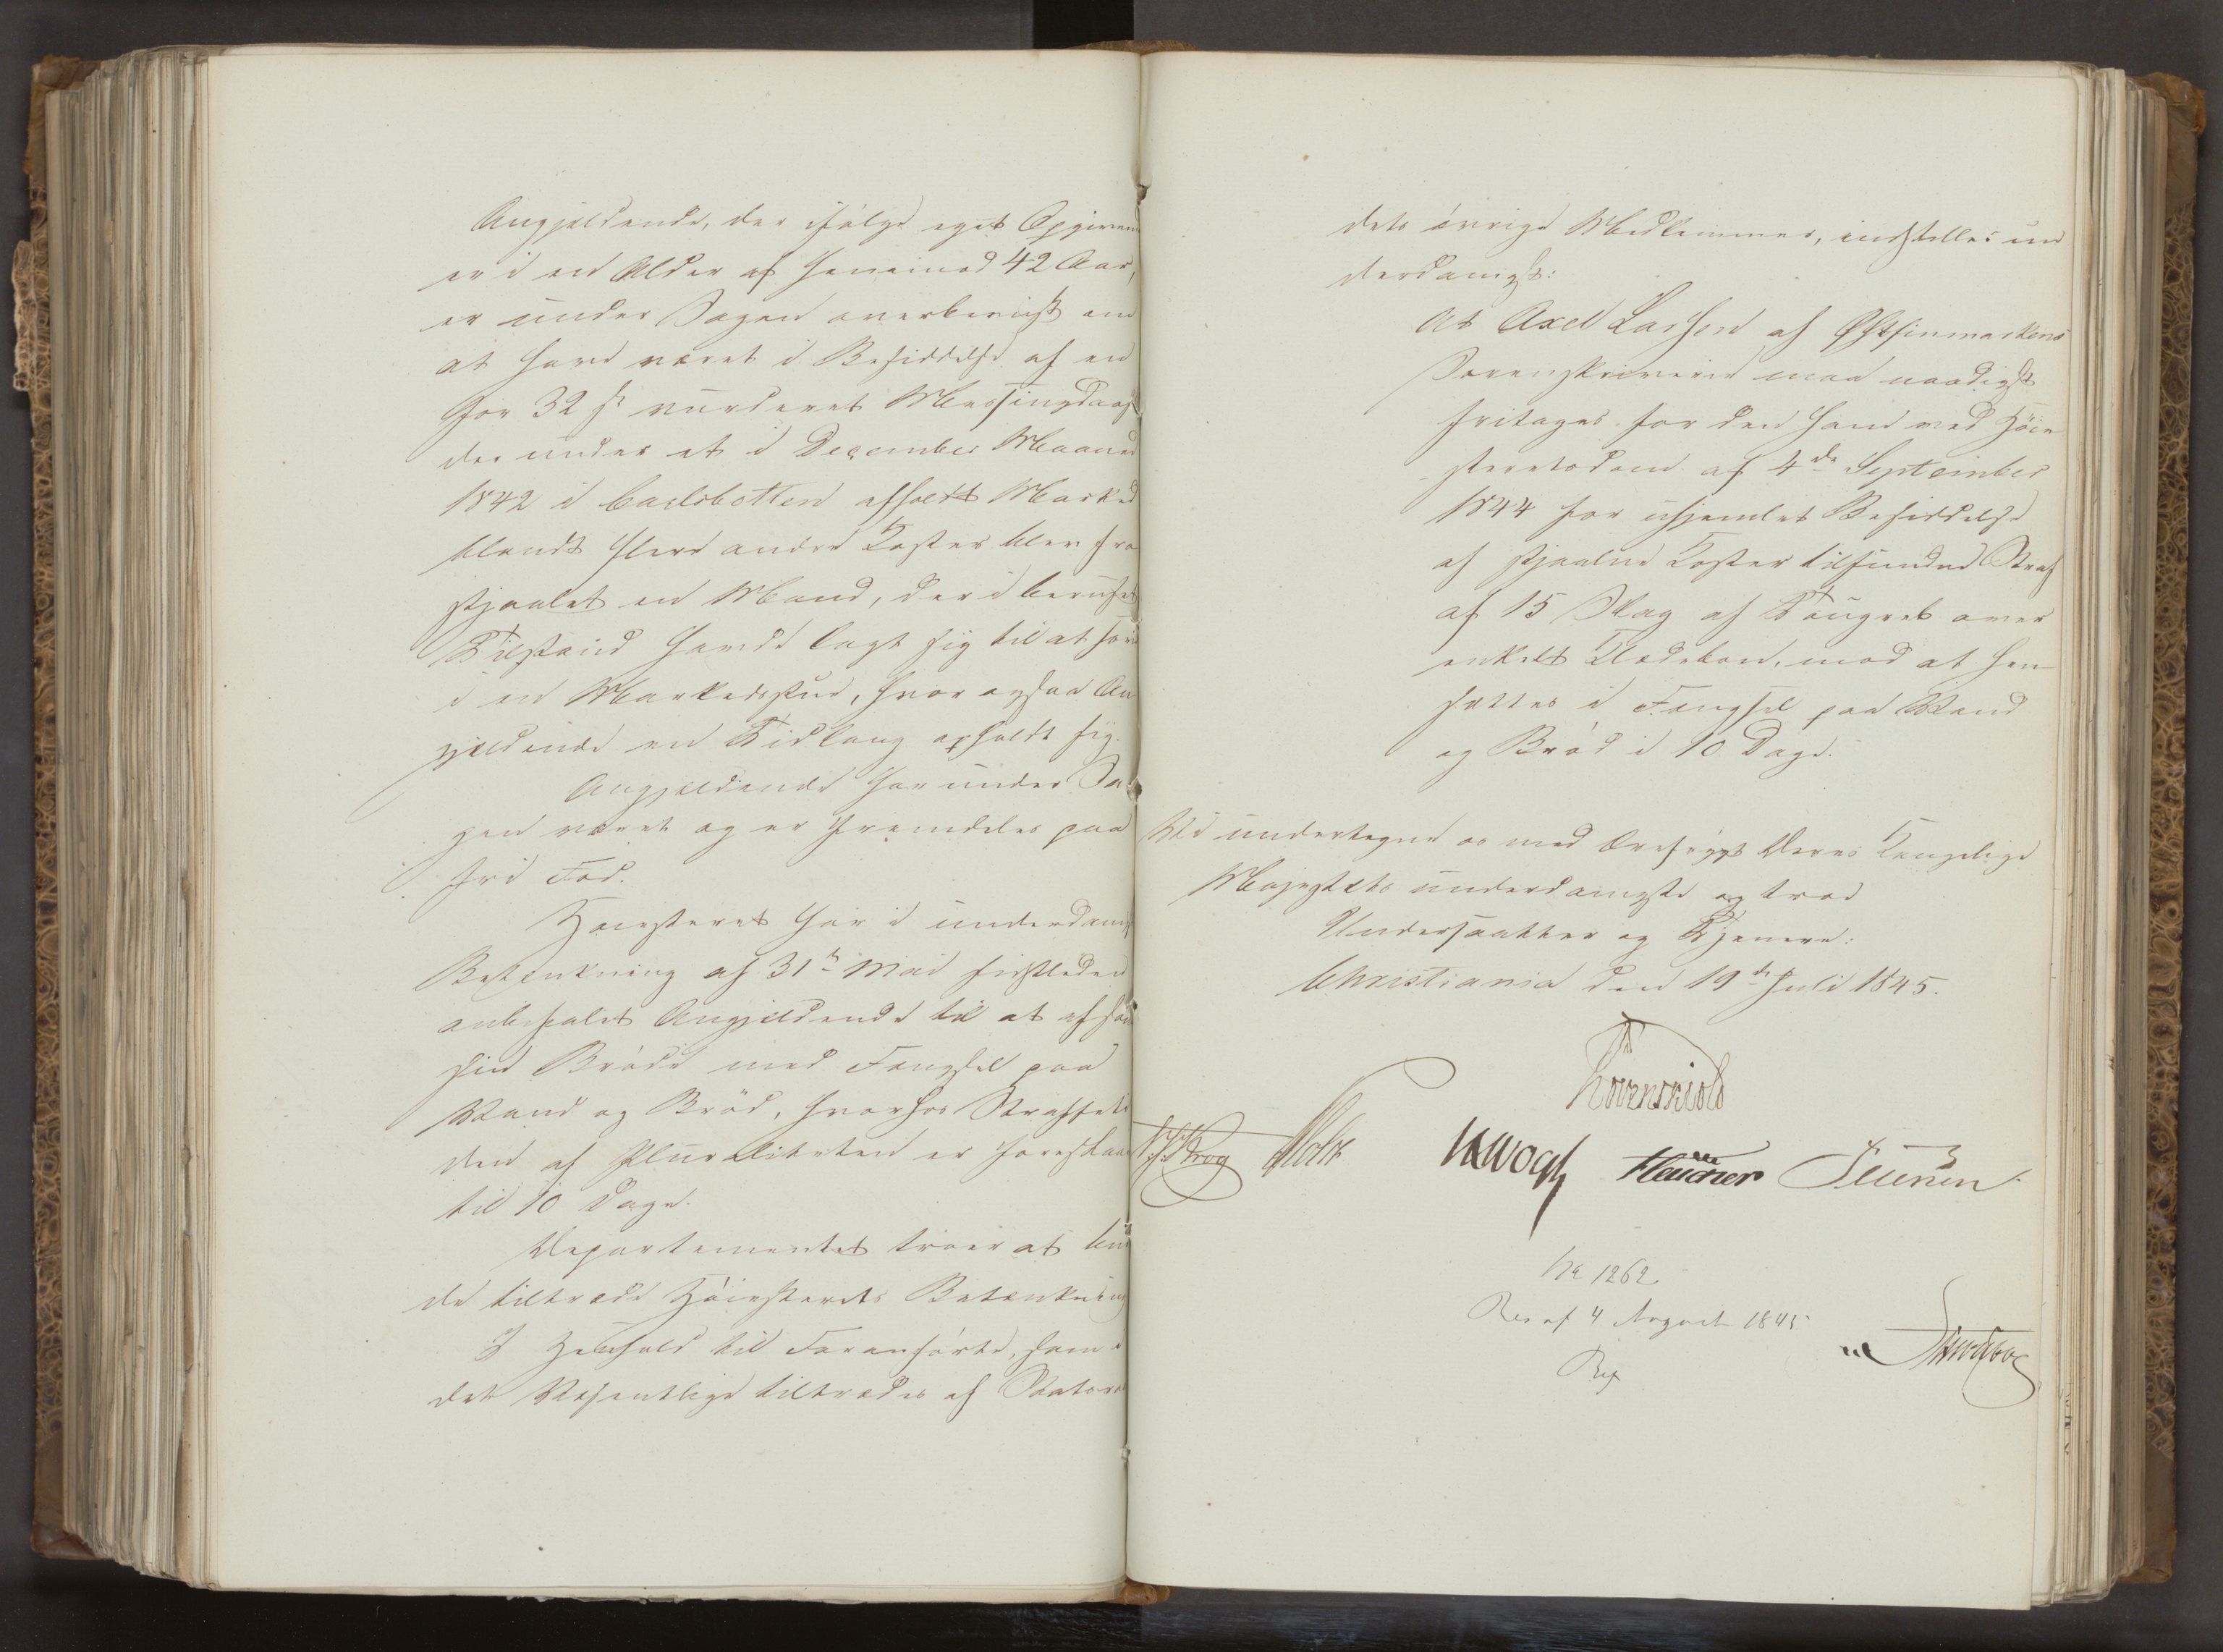 Angjeldende, der ifølge eget Opgivend
er i en Alder af henimod 42 Aar,
er under Sagen overbeviist om
at have været i Besiddelse af en
for 32 s vurderet Messingdaase
der under et i December Maaned
1842 i Carlsbotten afholdt Marked
blandt flere andre Koster blev fra
stjaalet en Mand, der i beruset
Tilstand havde lagt sig til at sove
i en Markedsstue, hvor ogsaa An
gjeldende en Tidlang opholdt sig.
Angjeldende har under Sa
gen været og er fremdeles paa
fri Fod.
Høiesteret har i underdanig
Betænkning af 31te Mai sidstleden
anbefalet Angjeldende til at afsone
sin Brøde med Fængsel paa
Vand og Brød, hvorhos Straffeti
den af Pluraliteten er foreslaaet
til 10 Dage.
Departementet troer at bur
de tiltræde Høiesterets Betænkning
I Henhold til Foranførte, som i
det Væsentlige tiltrædes af Statsraa
dets øvrige Medlemmer, indstilles un
derdanigst:
At Axel Larsen af Østfinmarkens
Sorenskriverie maa naadigst
fritages for den ham ved Høie
steretsdom af 4de September
1844 for uhjemlet Besiddelse
af stjaalne Koster tilfundne Straf
af 15 Slag af Tougreb over
enkelt Klædebon, mod at hen
sættes i Fængsel paa Vand
og Brød i 10 Dage.
Vi undertegne os med Ærefrygt Deres Kongelige
Majestæts underdanigste og troe
Undersaatter og Tjenere:
Christiania den 19de Juli 1845.
Løvenskiold
Krog Holst JHVogt Fleischer Petersen
No 1262
Res af 4 August 1845
Rex